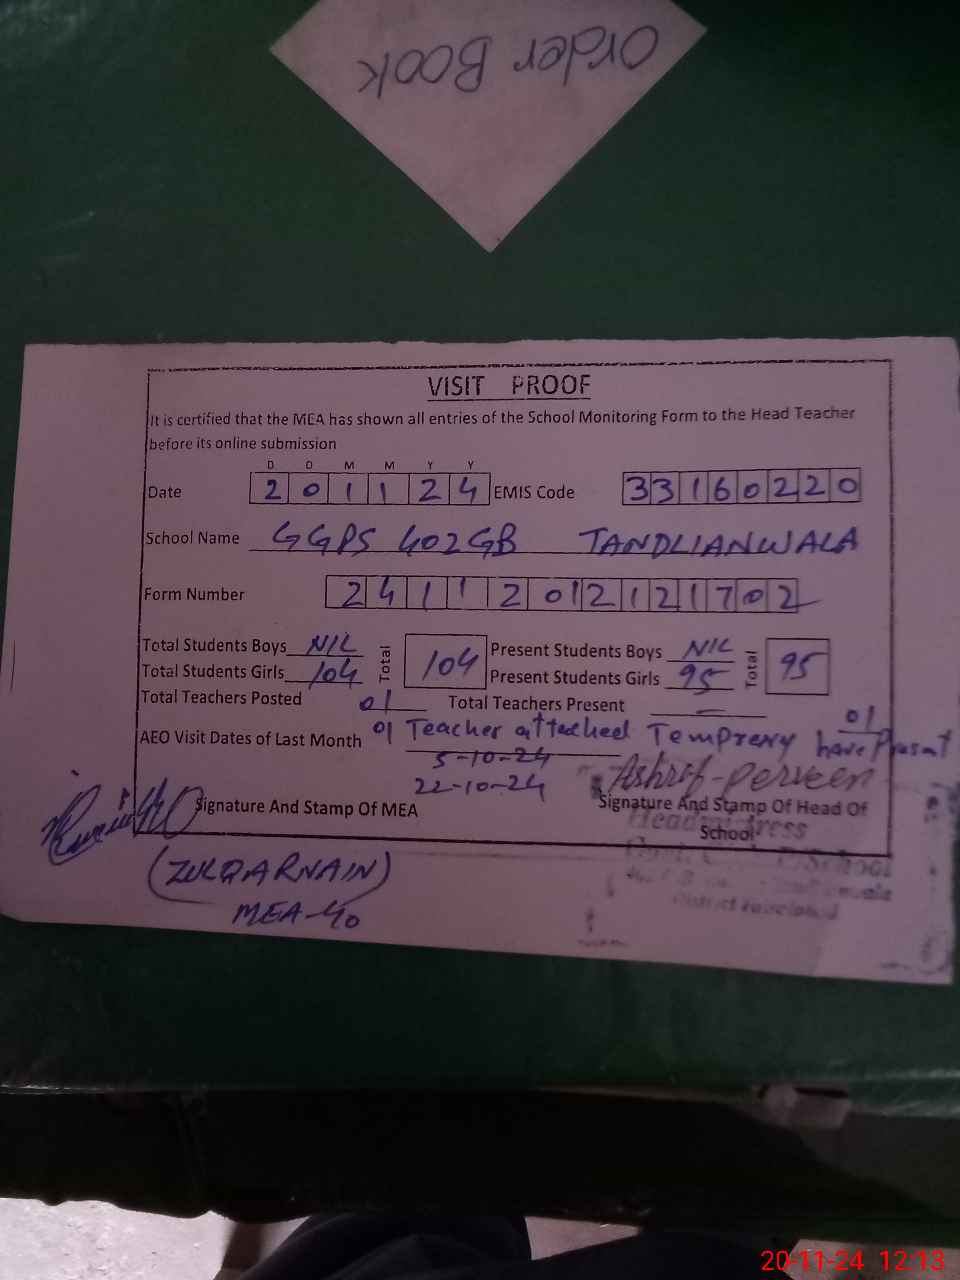 Order Book
VISIT PROOF
It is certified that the MEA has shown all entries of the School Monitoring Form to the Head Teacher
before its online submission
D D M M Y Y
Date 2 0 1 1 2 4 EMIS Code 3 3 1 6 0 2 2 0
School Name GGPS 402GB TANDLIANWALA
Form Number 2 4 1 1 2 0 1 2 1 2 1 7 0 2
Total Students Boys NIL Total 104 Present Students Boys NIL Total 95
Total Students Girls 104 Present Students Girls 95
Total Teachers Posted 01 Total Teachers Present — 01
AEO Visit Dates of Last Month 01 Teacher attached Temprery have Present
5-10-24
22-10-24
Ashraf-Perveen
Signature And Stamp Of MEA Signature And Stamp Of Head Of
School
Headmistress
(ZULQARNAIN)
MEA-40
20-11-24 12:13